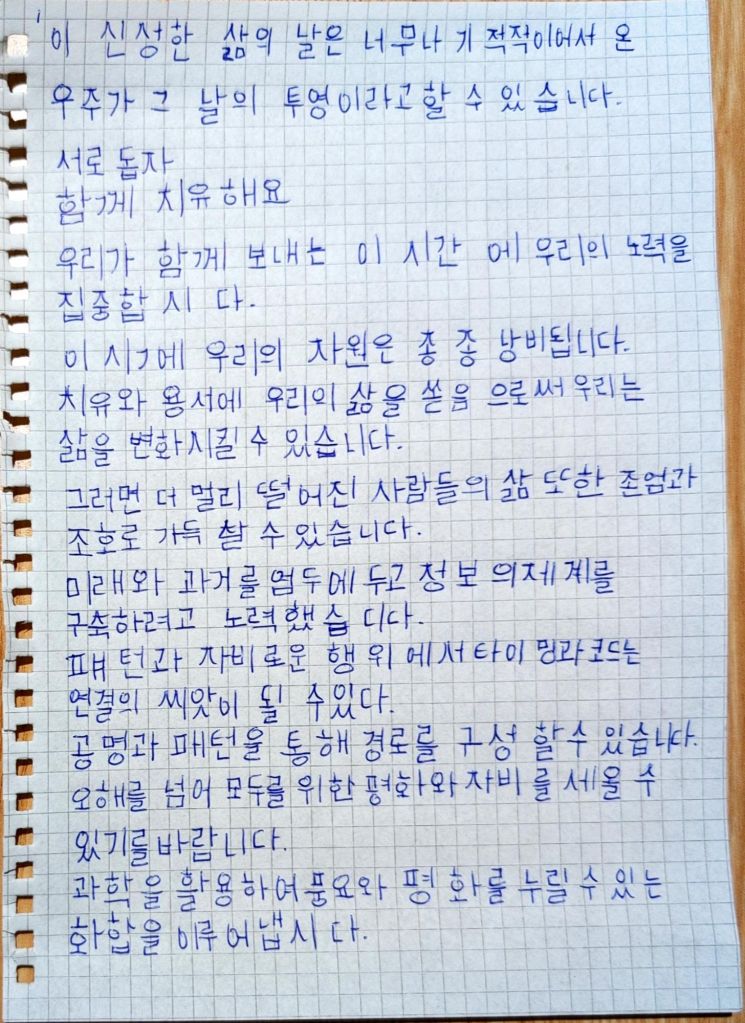 이 신성한 삶의 날은 너무나 기적적이어서 온
우주가 그 날의 투영이라고 할 수 있습니다.
서로 돕자
함께 치유해요
우리가 함께 보내는 이 시간에 우리의 노력을
집중합시다.
이 시기에 우리의 자원은 종종 낭비됩니다.
치유와 용서에 우리의 삶을 쏟음으로써 우리는
삶을 변화시킬 수 있습니다.
그러면 더 멀리 떨어진 사람들의 삶 또한 존엄과
조호로 가득 찰 수 있습니다.
미래와 과거를 염두에 두고 정보의 체계를
구축하려고 노력했습디다.
패턴과 자비로운 행위에서 타이밍과 코드는
연결의 씨앗이 될 수 있다.
공명과 패턴을 통해 경로를 구성할 수 있습니다.
오해를 넘어 모두를 위한 평화와 자비를 세울 수
있기를 바랍니다.
과학을 활용하여 풍요와 평화를 누릴 수 있는
화합을 이루어냅시다.